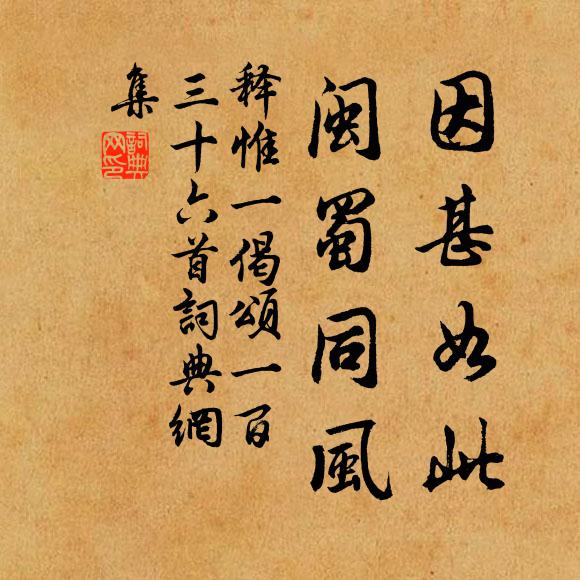 因甚如此
闽蜀同風
释惟一偈頌一百
三十六首詞典網
集
詞典
网印